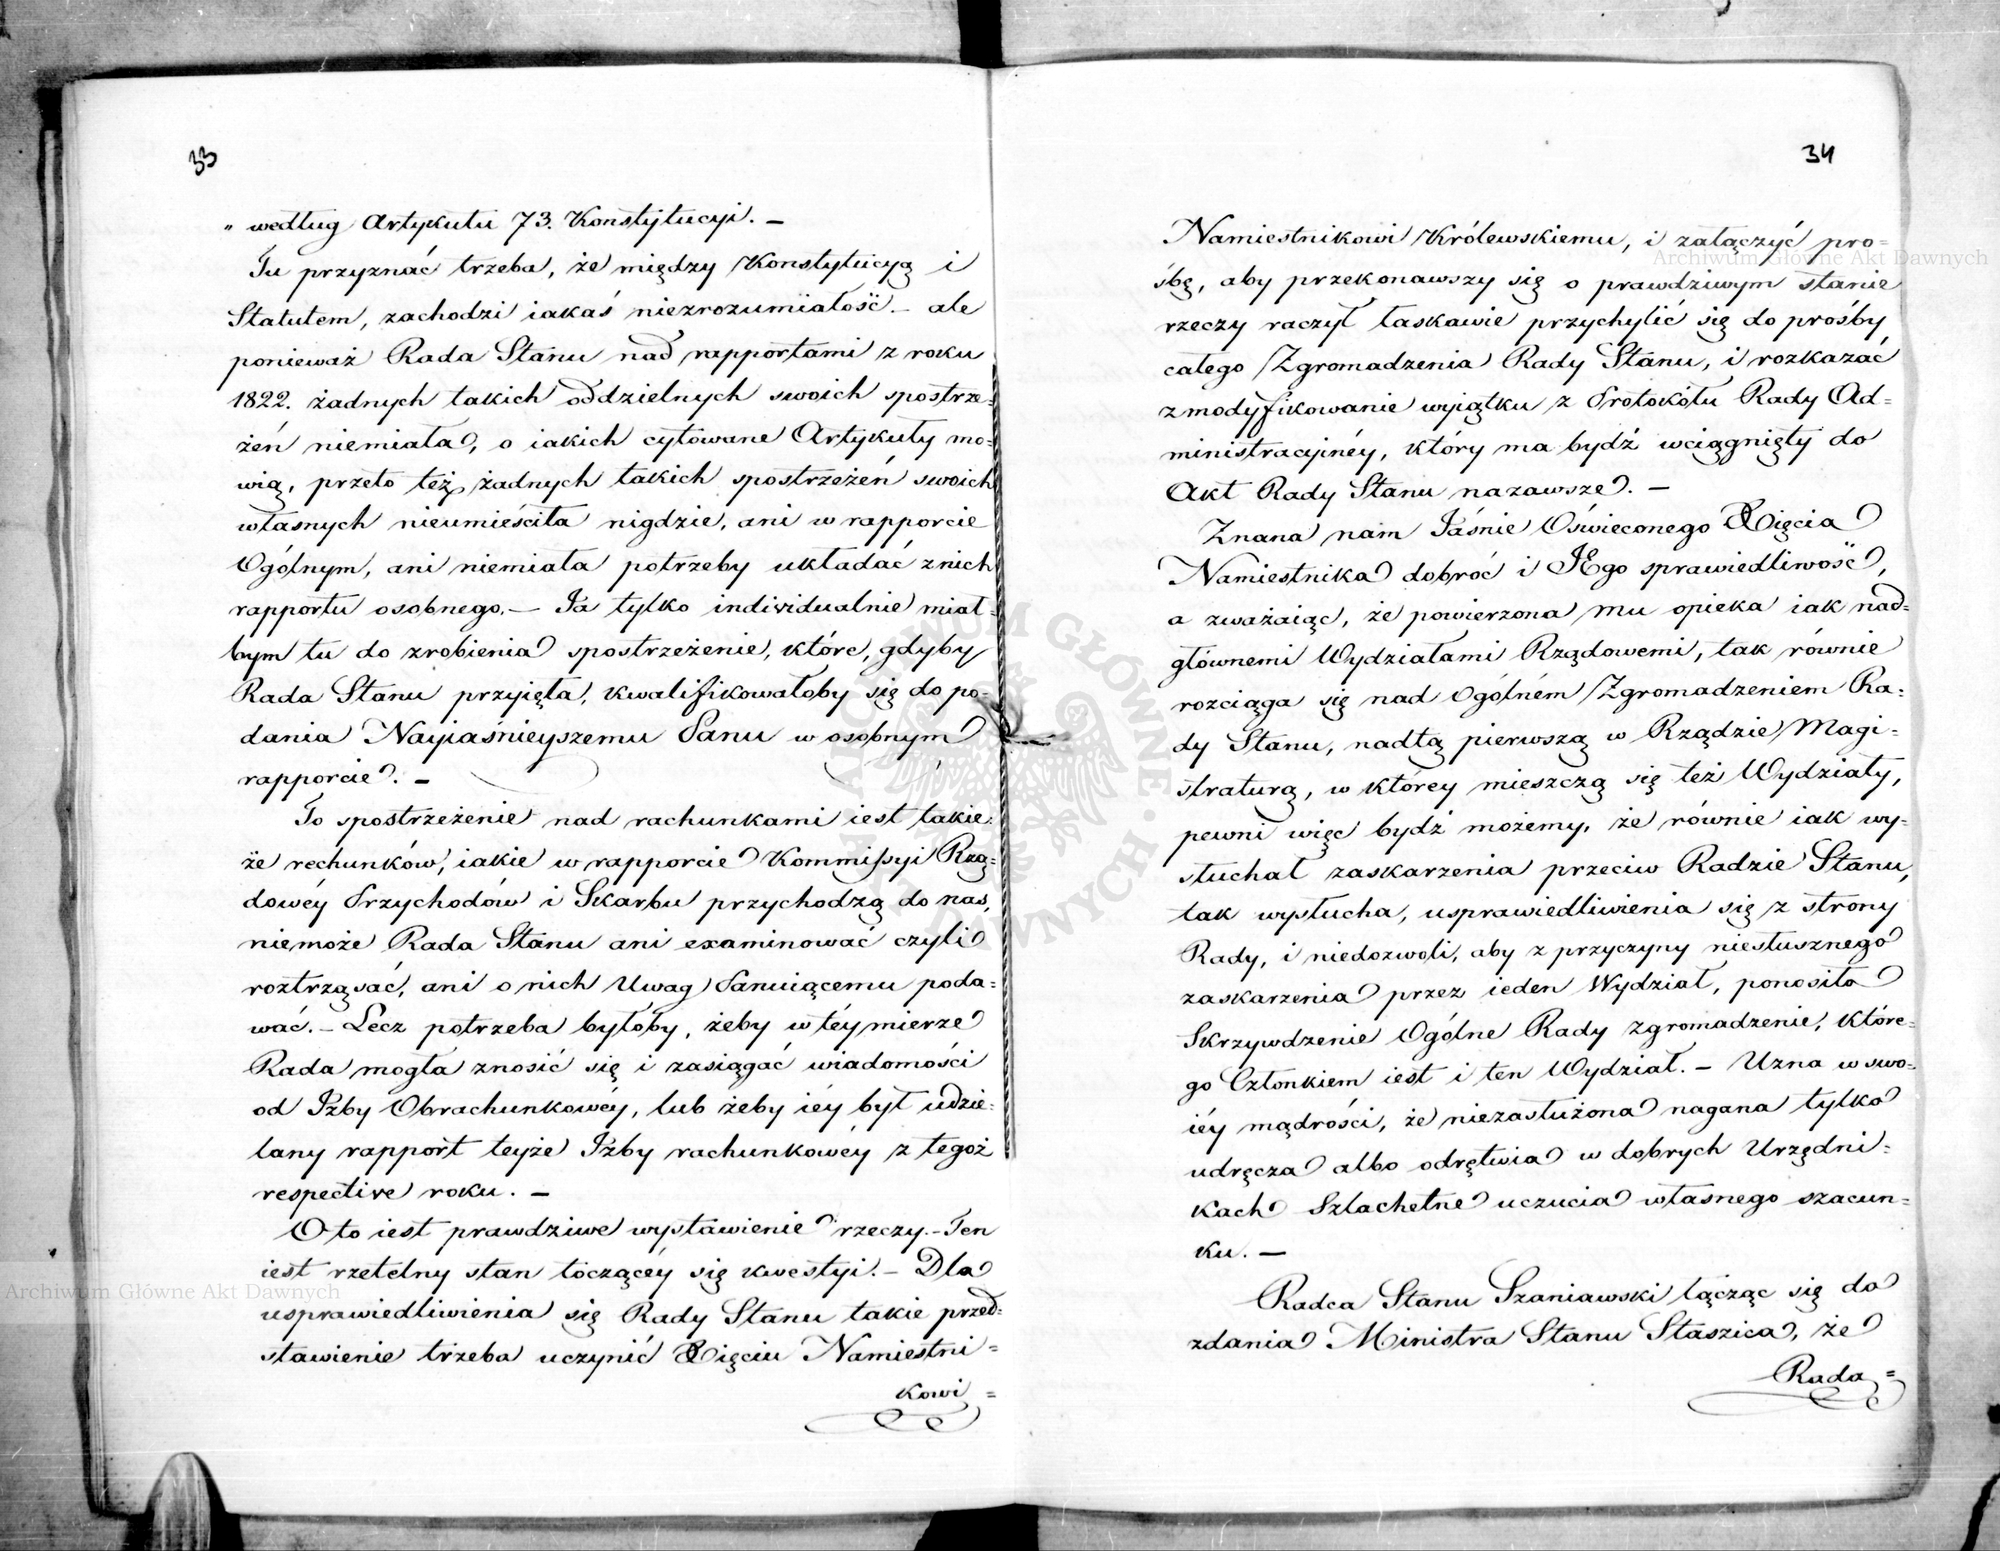 33
„ według Artykułu 73. Konstytucyi. –
Tu przyznać trzeba, że między Konstytucyą i
Statutem, zachodzi iakaś niezrozumiałość – ale
ponieważ Rada Stanu nad rapportami z roku
1822. żadnych takich oddzielnych swoich spostrze=
żeń niemiała, o iakich cytowane Artykuły mo=
wią, przeto też żadnych takich spostrzeżeń swoich
własnych nieumieściła nigdzie, ani w rapporcie
Ogólnym, ani niemiała potrzeby układać z nich
rapportu osobnego. – Ja tylko individualnie miał=
bym tu do zrobienia spostrzeżenie, które, gdyby
Rada Stanu przyięła, kwalifikowałoby się do po=
dania Nayiaśnieyszemu Panu w osobnym
rapporcie. –
To spostrzeżenie nad rachunkami iest takie:
że rechunków, iakie w rapporcie Kommissyi Rzą=
dowéy Przychodów i Skarbu przychodzą do nas,
niemoże Rada Stanu ani examinować czyli
roztrząsać, ani o nich Uwag Panuiącemu poda=
wać. – Lecz potrzeba byłoby, żeby w téy mierze
Rada mogła znosić się i zasiągać wiadomości
od Izby Obrachunkowéy, lub żeby iéy był udzie=
lany rapport teyże Izby rachunkowéy z tegoż
respective roku. –
Oto iest prawdziwe wystawienie rzeczy. – Ten
iest rzetelny stan toczącéy się kwestyi. – Dla
usprawiedliwienia się Rady Stanu takie przed=
stawienie trzeba uczynić Xięciu Namiestni=
kowi =
34
Namiestnikowi Królewskiemu, i załączyć pro=
śbę, aby przekonawszy się o prawdziwym stanie
rzeczy raczył łaskawie przychylić się do prośby
całego Zgromadzenia Rady Stanu, i rozkazać
zmodyfikowanie wyiątku z Protokółu Rady Ad=
ministracyinéy, który ma bydź wciągnięty do
Akt Rady Stanu nazawsze. –
Znana nam Jaśnie Oświeconego Xięcia
Namiestnika dobroć i JEgo sprawiedliwość,
a zważaiąc, że powierzona mu opieka iak nad=
głównemi Wydziałami Rządowemi, tak równie
rozciąga się nad Ogólném Zgromadzeniem Ra=
dy Stanu, nadtą pierwszą w Rządzie Magi=
straturą, w którey mieszczą się też Wydziały,
pewni więc bydź możemy, że równie iak wy=
słuchał zaskarzenia przeciw Radzie Stanu,
tak wysłucha, usprawiedliwienia się z strony
Rady, i niedozwoli, aby z przyczyny niesłusznego
zaskarzenia przez ieden Wydział, ponosiło
Skrzywdzenie Ogólne Rady zgromadzenie, które=
go Członkiem iest i ten Wydział. – Uzna w swo=
iéy mądrości, że niezasłużona nagana tylko
udręcza albo odrętwia w dobrych Urzędni=
kach Szlachetne uczucia własnego szacun=
ku. –
Radca Stanu Szaniawski łącząc się do
zdania Ministra Stanu Staszica, że
Rada =
Archiwum Główne Akt Dawnych
Archiwum Główne Akt Dawnych
ARCHIWUM GŁÓWNE AKT DAWNYCH